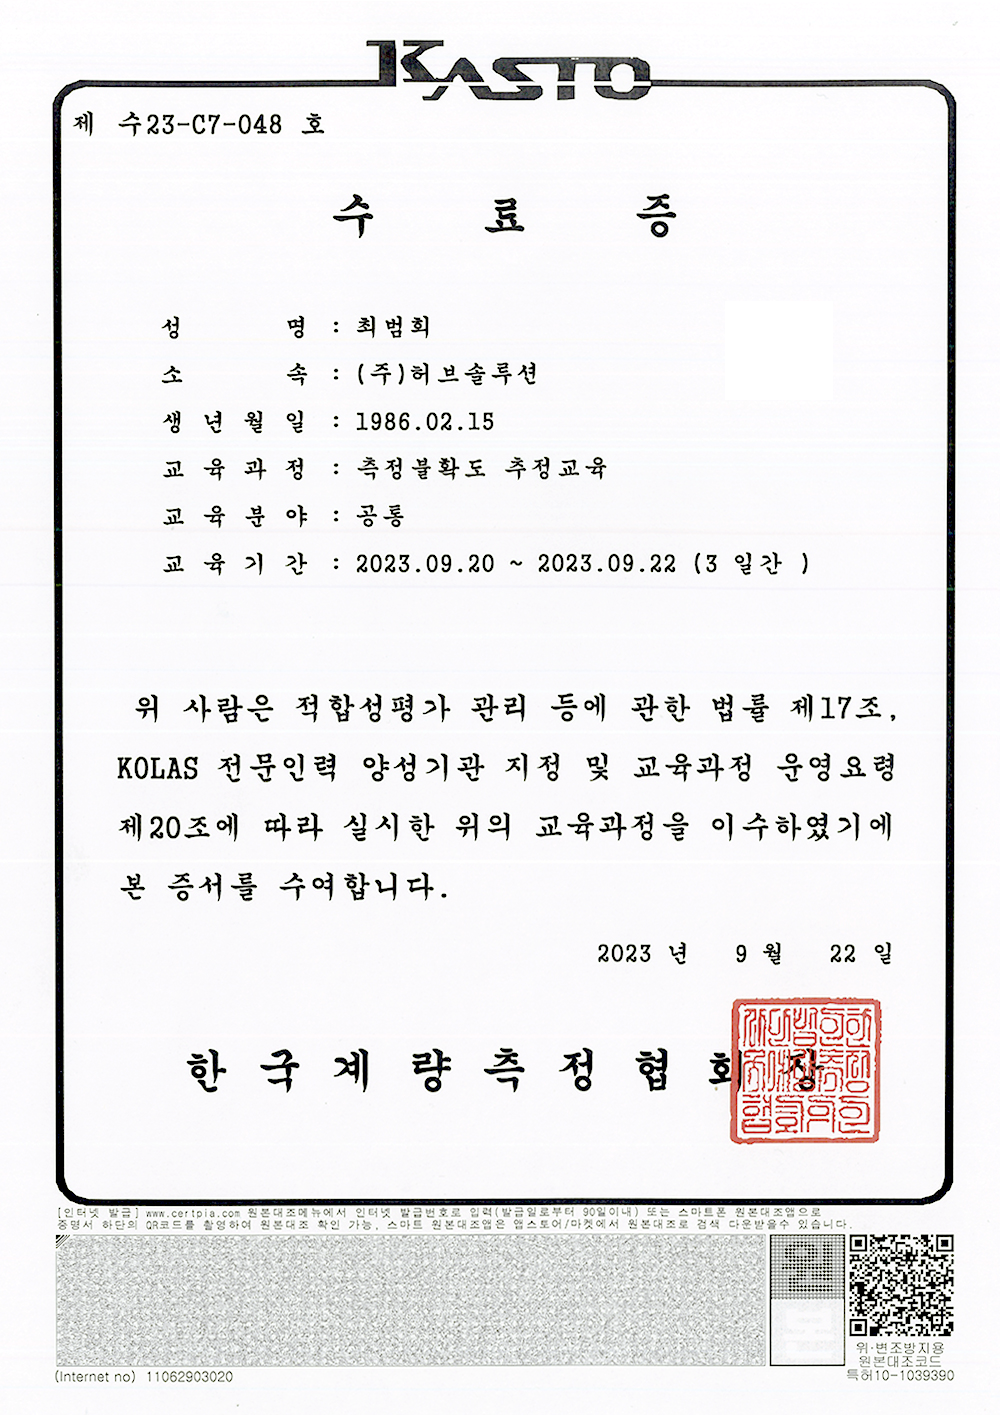 KASTO
제 수23-C7-048 호
수 료 증
성 명 : 최범희
소 속 : (주)허브솔루션
생 년 월 일 : 1986.02.15
교 육 과 정 : 측정불확도 추정교육
교 육 분 야 : 공통
교 육 기 간 : 2023.09.20 ~ 2023.09.22 (3 일간 )
위 사람은 적합성평가 관리 등에 관한 법률 제17조,
KOLAS 전문인력 양성기관 지정 및 교육과정 운영요령
제20조에 따라 실시한 위의 교육과정을 이수하였기에
본 증서를 수여합니다.
2023 년 9 월 22 일
한 국 계 량 측 정 협 회 장
[인터넷 발급] www.certpia.com 원본대조메뉴에서 인터넷 발급번호로 입력(발급일로부터 90일이내) 또는 스마트폰 원본대조앱으로
증명서 하단의 QR코드를 촬영하여 원본대조 확인 가능, 스마트 원본대조앱은 앱스토어/마켓에서 원본대조로 검색 다운받을수 있습니다.
위·변조방지용
원본대조코드
(Internet no) 11062903020
특허10-1039390